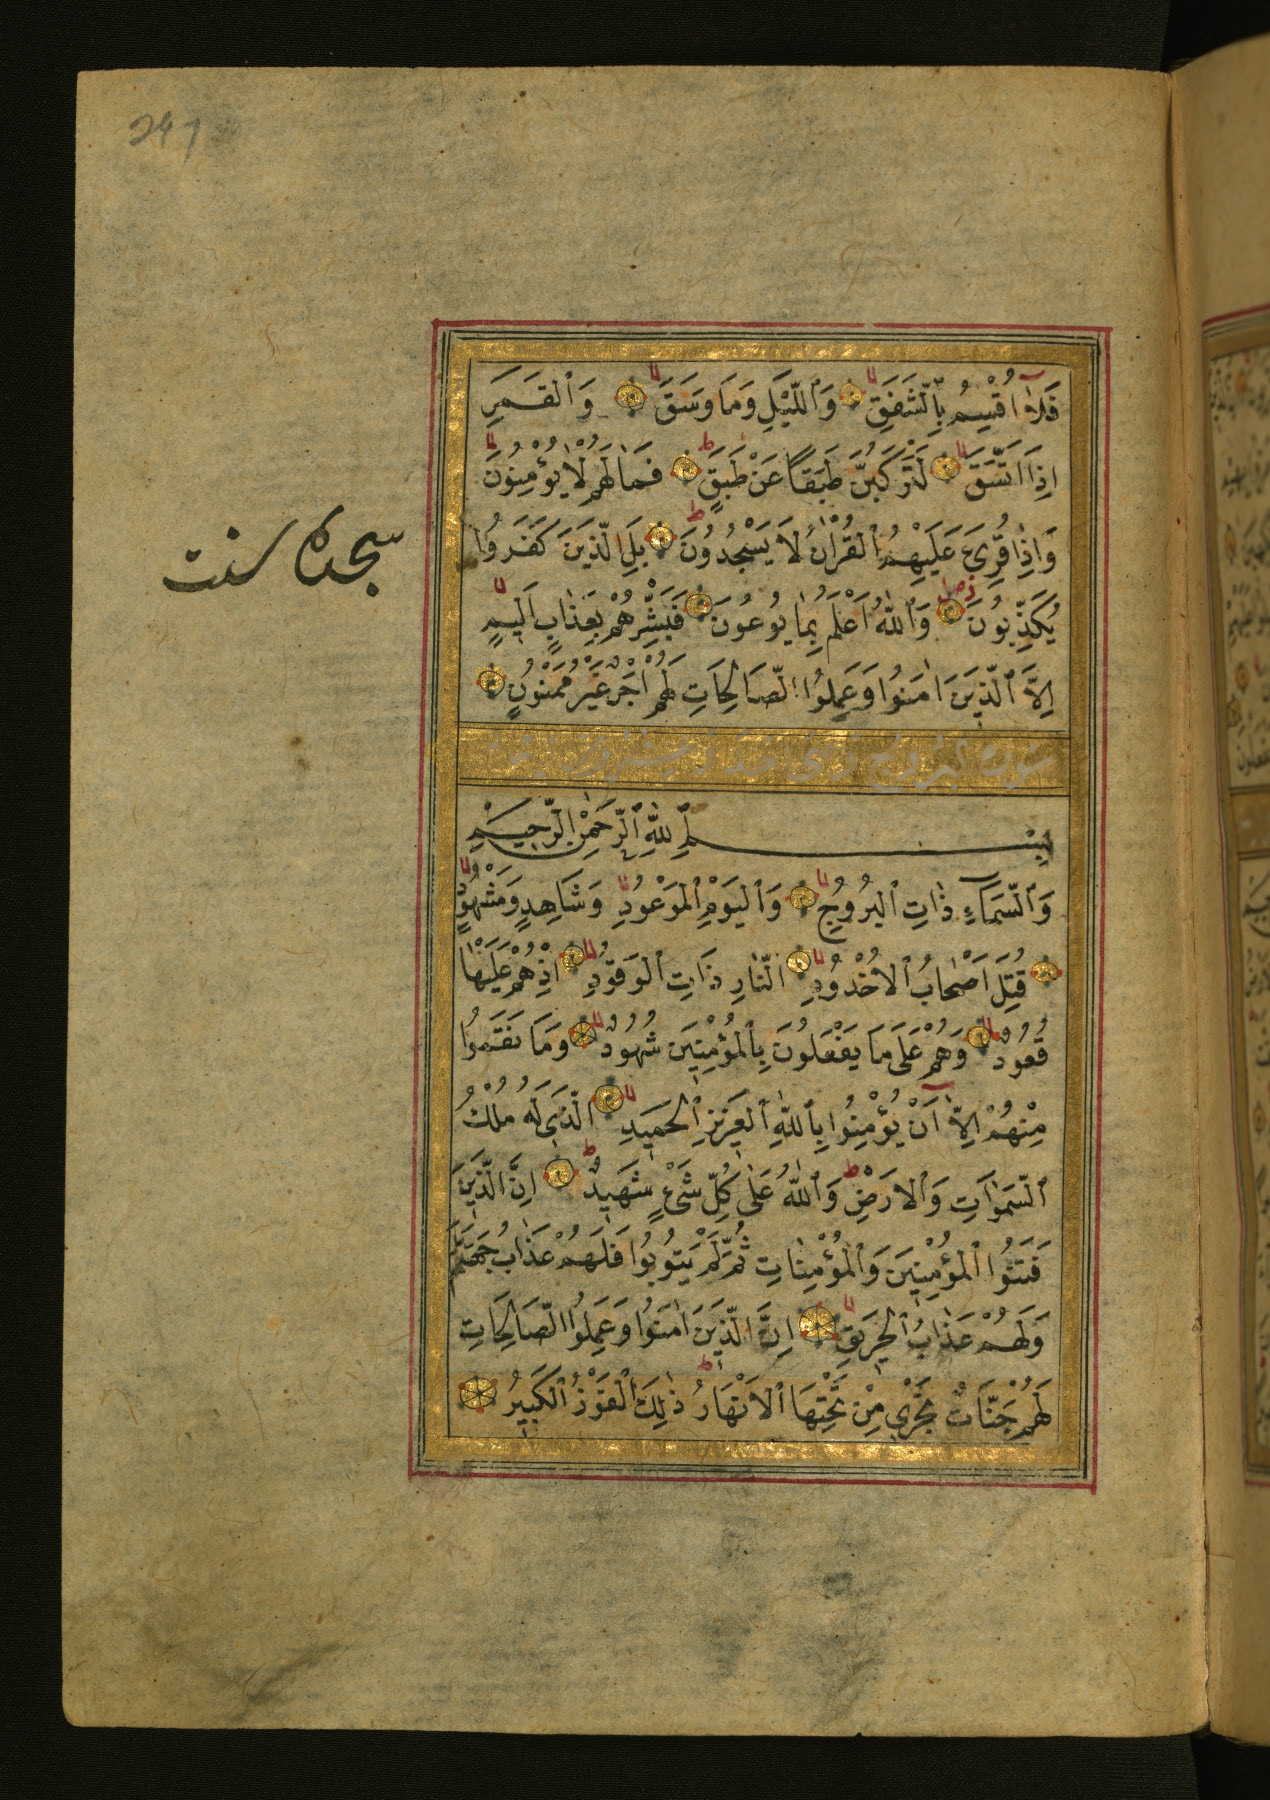 247
فَلَاۤ اُقْسِمُ بِالشَّفَقِ وَالَّيْلِ وَمَا وَسَقَ وَالْقَمَرِ
اِذَا اتَّسَقَ لَتَرْكَبُنَّ طَبَقًا عَنْ طَبَقٍ فَمَا لَهُمْ لَا يُؤْمِنُونَ
وَاِذَا قُرِئَ عَلَيْهِمُ الْقُرْاٰنُ لَا يَسْجُدُونَ بَلِ الَّذِينَ كَفَرُوا
يُكَذِّبُونَ وَاللّٰهُ اَعْلَمُ بِمَا يُوعُونَ فَبَشِّرْهُمْ بِعَذَابٍ اَلِيمٍ
اِلَّا الَّذِينَ اٰمَنُوا وَعَمِلُوا الصَّالِحَاتِ لَهُمْ اَجْرٌ غَيْرُ مَمْنُونٍ
سجده سنت
سورة البروج
بِسْمِ اللّٰهِ الرَّحْمٰنِ الرَّحِيمِ
وَالسَّمَاۤءِ ذَاتِ الْبُرُوجِ وَالْيَوْمِ الْمَوْعُودِ وَشَاهِدٍ وَمَشْهُودٍ
قُتِلَ اَصْحَابُ الْاُخْدُودِ النَّارِ ذَاتِ الْوَقُودِ اِذْ هُمْ عَلَيْهَا
قُعُودٌ وَهُمْ عَلَى مَا يَفْعَلُونَ بِالْمُؤْمِنِينَ شُهُودٌ وَمَا نَقَمُوا
مِنْهُمْ اِلَّاۤ اَنْ يُؤْمِنُوا بِاللّٰهِ الْعَزِيزِ الْحَمِيدِ الَّذِى لَهُ مُلْكُ
السَّمٰوَاتِ وَالْاَرْضِ وَاللّٰهُ عَلَى كُلِّ شَىْءٍ شَهِيدٌ اِنَّ الَّذِينَ
فَتَنُوا الْمُؤْمِنِينَ وَالْمُؤْمِنَاتِ ثُمَّ لَمْ يَتُوبُوا فَلَهُمْ عَذَابُ جَهَنَّمَ
وَلَهُمْ عَذَابُ الْحَرِيقِ اِنَّ الَّذِينَ اٰمَنُوا وَعَمِلُوا الصَّالِحَاتِ
لَهُمْ جَنَّاتٌ تَجْرِي مِنْ تَحْتِهَا الْاَنْهَارُ ذٰلِكَ الْفَوْزُ الْكَبِيرُ